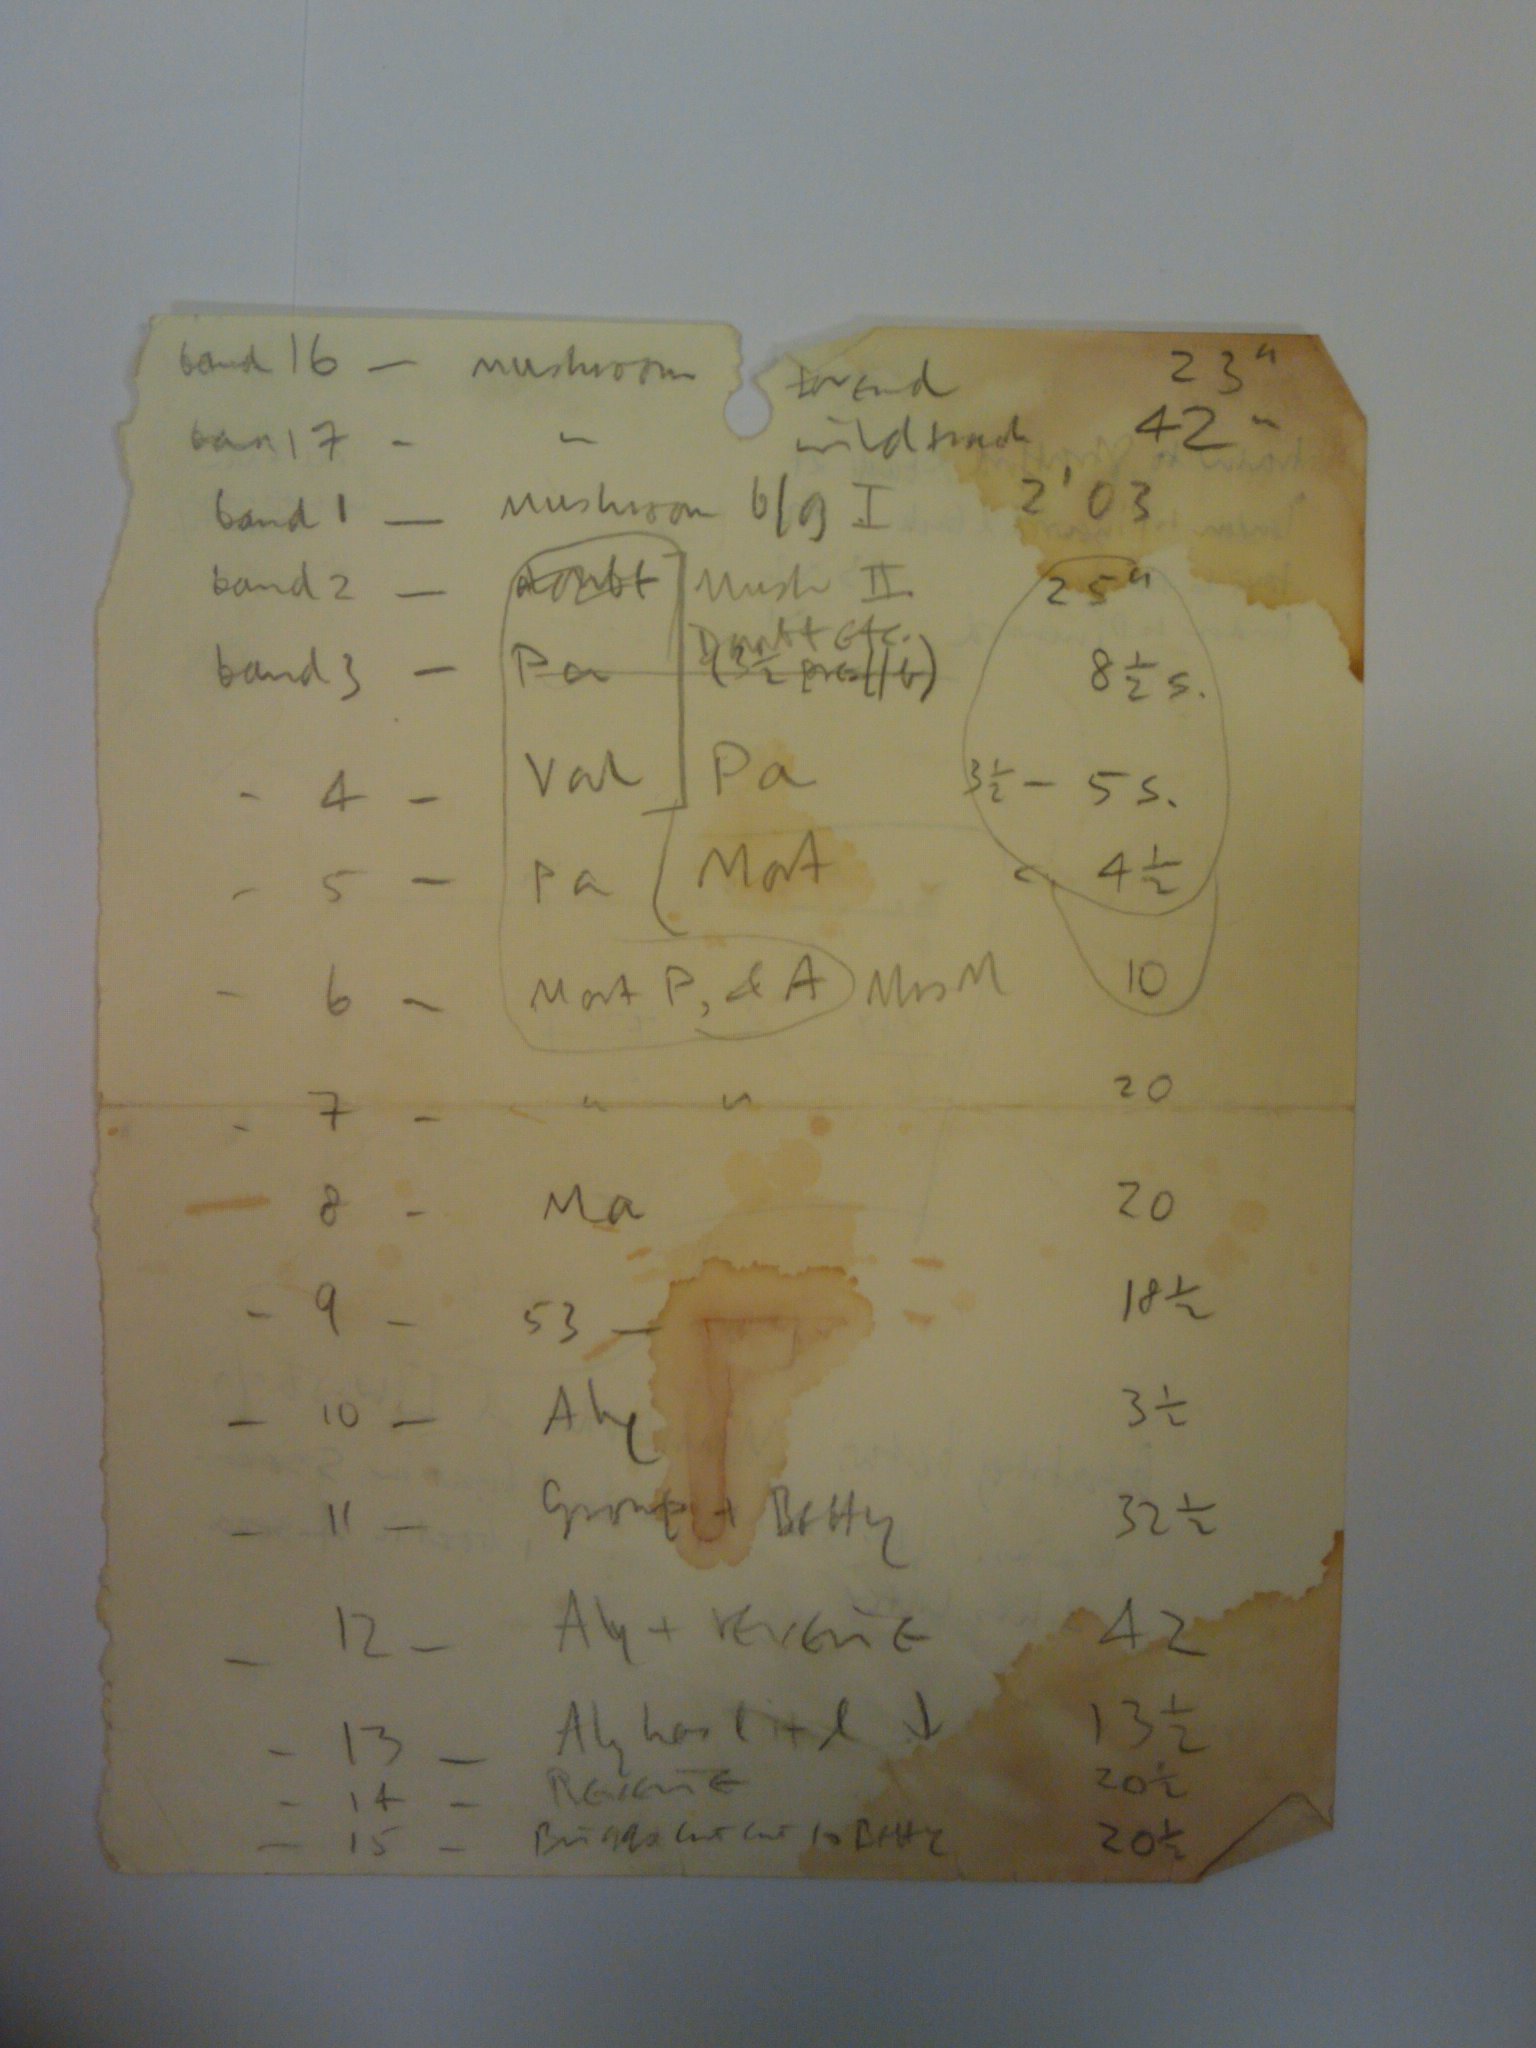 band 16 — mushroom for end 23"
ban 17 - " wildtrack 42 "
band 1 — mushroom b/g I 2'03
band 2 — Doubt Mush II 25"
Doubt etc.
band 3 — Pa (3½ 8½ s.
- 4 - Val Pa 3½ - 5 s.
- 5 - Pa Mort 4½
- 6 - Mort P, & A Mrs M 10
- 7 - " " 20
8 - Ma 20
- 9 - 53 — 18½
- 10 - Aly 3½
- 11 - Group + Betty 32½
- 12 - Aly + reverie 42
- 13 - Aly has l it d ↓ 13½
- 14 - Reverie 20½
- 15 - Briggs cut cut to Betty 20½